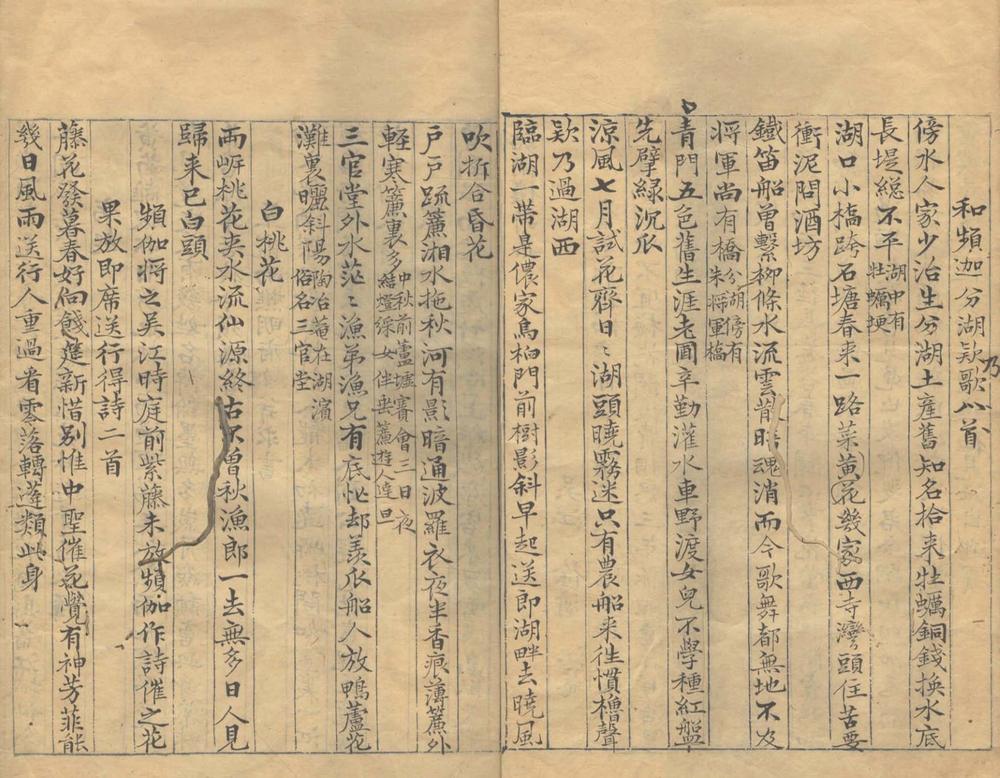 和頻迦分湖欵乃歌八首
傍水人家少治生分湖土產舊知名拾来牡蠣銅錢換水底
長堤緫不平湖中有牡蠣埂
湖口小橋跨石塘春来一路菜黄花幾家西寺灣頭住苦要
衝泥問酒坊
鐵笛船曽繫柳條水流雲散暗魂消而今歌舞都無地不及
将軍尚有橋分湖傍有朱将軍橋
青門五色舊生涯老圃辛勤灌水車野渡女兒不學種紅盤
先擘綠沉瓜
涼風七月試花齊日〻湖頭曉霧迷只有農船来往慣櫓聲
欵乃過湖西
臨湖一帶是儂家烏桕門前樹影斜早起送郎湖畔去曉風
吹折合昏花
戸戸疏簾湘水拖秋河有影暗通波羅衣夜半香痕薄簾外
輕寒簾裏多中秋前蘆墟賽會三日夜結燈綵女伴垂簾遊人達旦
三官堂外水茫〻漁弟漁兄有底忙却羡瓜船人放鴨蘆花
灘裏曬斜陽陶冶菴在湖濱俗名三官堂
白桃花
兩岍桃花夾水流仙源終古不曽秋漁郎一去無多日人見
歸来已白頭
頻伽将之吴江時庭前紫藤未放頻伽作詩催之花
果放即席送行得詩二首
藤花發暮春好向餞筵新惜别惟中聖催花覺有神芳菲能
幾日風雨送行人重過看零落轉蓬類此身